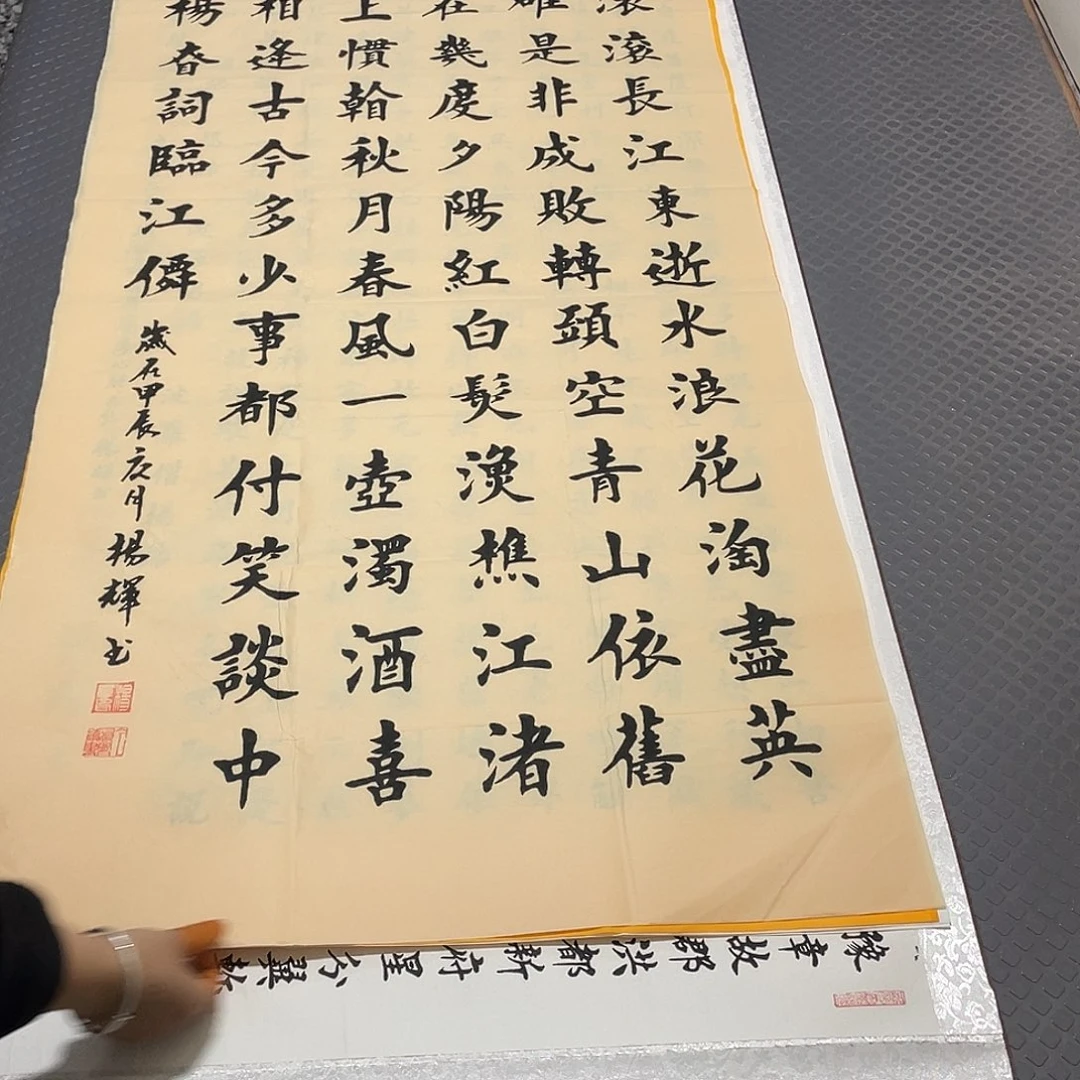 滚滚長江東逝水浪花淘盡英
雄是非成敗轉頭空青山依舊
在幾度夕陽紅白髮漁樵江渚
上慣看秋月春風一壺濁酒喜
相逢古今多少事都付笑談中
楊昚詞臨江僊
歲在甲辰月楊輝书
豫章故郡洪都新府星分翼軫